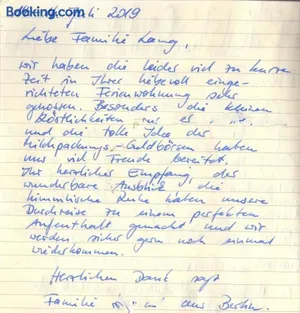 Booking.com
Juli 2019
Liebe Familie Lang,
wir haben die leider viel zu kurze
Zeit in Ihrer liebevoll einge-
richteten Ferienwohnung sehr
genossen. Besonders die kleinen
Köstlichkeiten
und die tolle Idee der
Milchpackungs-Geldbörsen haben
uns viel Freude bereitet.
Ihr herzlicher Empfang, der
wunderbare Ausblick, die
himmlische Ruhe haben unsere
Durchreise zu einem perfekten
Aufenthalt gemacht und wir
werden sicher gern noch einmal
wiederkommen.
Herzlichen Dank sagt
Familie aus Berlin.